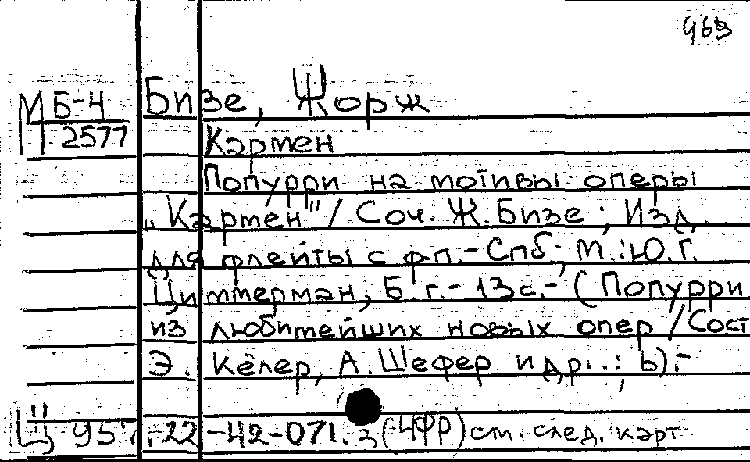 963
М Б-4 Бизе, Жорж
2577 Кармен
Попурри на мотивы оперы
„Кармен" / Соч. Ж. Бизе ; Изд.
для флейты с ф.п. - Спб ; М. : Ю. Г.
Циммерман, Б. г. - 13 с. - (Попурри
из любимейших новых опер / Сост.
Э. Кёлер, А. Шефер и др. . ; 6). -
Ц 957-22-42-071. 3 (ЧФР) см. след. карт